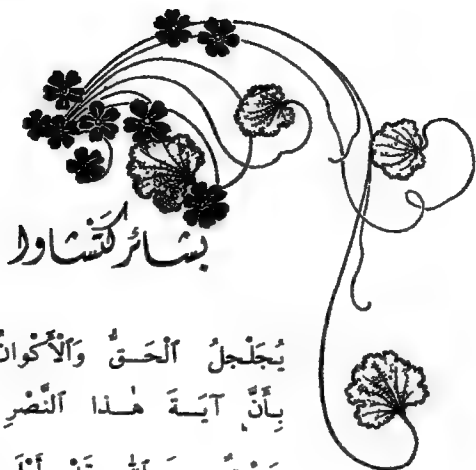 بشائر كتشاوا
يُجَلْجِلُ ٱلْحَــقُّ وَٱلْأَكْوَانُ
بِأَنَّ آيَــةَ هٰــذَا ٱلنَّصْرِ